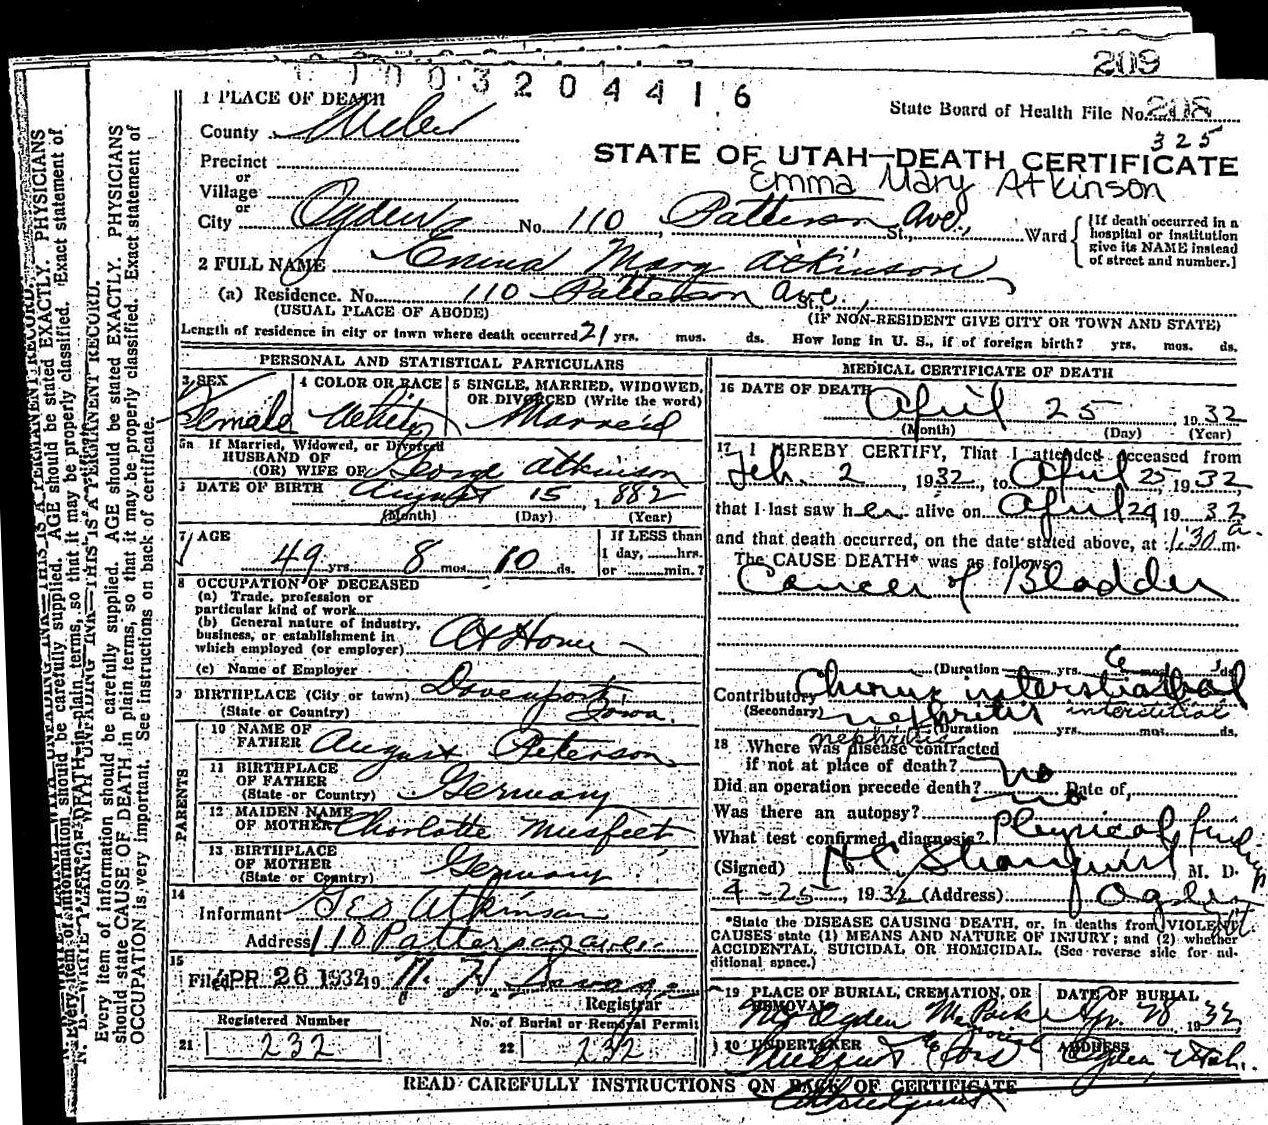 209
1 0 0 3 2 0 4 4 1 6
1 PLACE OF DEATH
State Board of Health File No. 208
County Weber
325
STATE OF UTAH—DEATH CERTIFICATE
Precinct
or
Village
or
Emma Mary Atkinson
City Ogden No. 110 Patterson Ave., St., Ward
{If death occurred in a hospital or institution give its NAME instead of street and number.]
2 FULL NAME Emma Mary Atkinson
(a) Residence. No. 110 Patterson Ave., St.,
(USUAL PLACE OF ABODE) (IF NON-RESIDENT GIVE CITY OR TOWN AND STATE)
Length of residence in city or town where death occurred 21 yrs. mos. ds. How long in U. S., if of foreign birth? yrs. mos. ds.
PERSONAL AND STATISTICAL PARTICULARS
3 SEX
Female
4 COLOR OR RACE
White
5 SINGLE, MARRIED, WIDOWED,
OR DIVORCED (Write the word)
Married
5a If Married, Widowed, or Divorced
HUSBAND OF
(OR) WIFE OF George Atkinson
DATE OF BIRTH August 15, 1882
(Month) (Day) (Year)
7 AGE
49 yrs. 8 mos. 10 ds.
If LESS than
1 day, hrs.
or min.?
8 OCCUPATION OF DECEASED
(a) Trade, profession or
particular kind of work
(b) General nature of industry,
business, or establishment in
which employed (or employer) At Home
(c) Name of Employer
9 BIRTHPLACE (City or town) Davenport
(State or Country) Iowa.
PARENTS
10 NAME OF
FATHER August Peterson
11 BIRTHPLACE
OF FATHER
(State or Country) Germany
12 MAIDEN NAME
OF MOTHER Charlotte Musfeet
13 BIRTHPLACE
OF MOTHER
(State or Country) Germany
14
Informant Geo Atkinson
Address 110 Patterson ave.
15
Filed APR 26 1932 19
Registrar
Registered Number
21 232
No. of Burial or Removal Permit
22 232
MEDICAL CERTIFICATE OF DEATH
16 DATE OF DEATH
April 25 1932
(Month) (Day) (Year)
17 I HEREBY CERTIFY, That I attended deceased from
Feb. 2, 1932, to April 25, 1932,
that I last saw her alive on April 24 1932
and that death occurred, on the date stated above, at 1:30 a. m.
The CAUSE DEATH* was as follows
Cancer of Bladder
(Duration yrs. 6 mos. ds.
Contributory Chronic interstitial
(Secondary) nephritis interstitial
(Duration yrs. mos. ds.
nephritis
18 Where was disease contracted
if not at place of death?
Did an operation precede death? no Date of,
Was there an autopsy? no
What test confirmed diagnosis? Physical findings
(Signed) M. D.
4-25, 1932 (Address) Ogden Ut.
*State the DISEASE CAUSING DEATH, or, in deaths from VIOLENT
CAUSES state (1) MEANS AND NATURE OF INJURY; and (2) whether
ACCIDENTAL, SUICIDAL OR HOMICIDAL. (See reverse side for additional space.)
19 PLACE OF BURIAL, CREMATION, OR
REMOVAL
Ogden Memorial Park
DATE OF BURIAL
Apr. 28 1932
20 UNDERTAKER
ADDRESS
Ogden, Utah.
READ CAREFULLY INSTRUCTIONS ON BACK OF CERTIFICATE
N. B.—WRITE PLAINLY WITH UNFADING INK—THIS IS A PERMANENT RECORD.
Every item of information should be carefully supplied. AGE should be stated EXACTLY. PHYSICIANS
should state CAUSE OF DEATH in plain terms, so that it may be properly classified. Exact statement of
OCCUPATION is very important. See instructions on back of certificate.